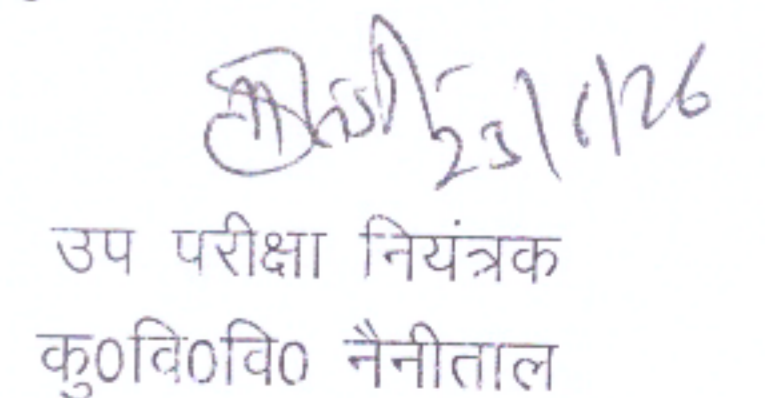 23/1/26
उप परीक्षा नियंत्रक
कु0वि0वि0 नैनीताल